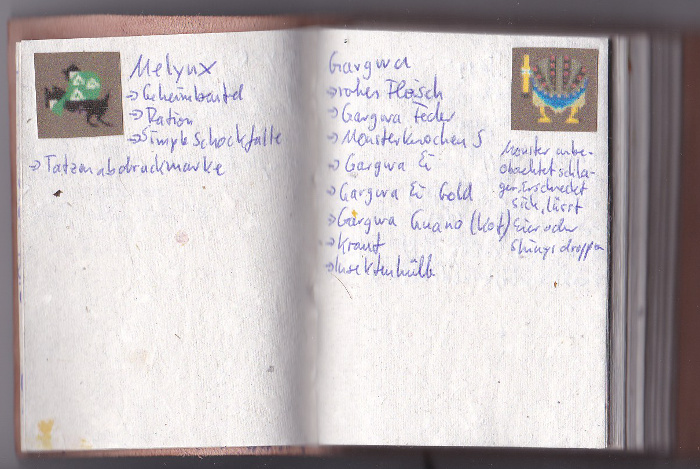 Melynx
→ Geheimbeutel
→ Ration
→ Simple Schockfalle
→ Tatzenabdruckmarke
Gargwa
→ rohes Fleisch
→ Gargwa Feder
→ Monsterknochen S
→ Gargwa Ei
→ Gargwa Ei Gold
→ Gargwa Guano (Kot)
→ Kraut
→ Insektenhülle
Monster unbe-
obachtet schla-
gen, Erschreckt
sich, lässt
Eier oder
Shinys droppen